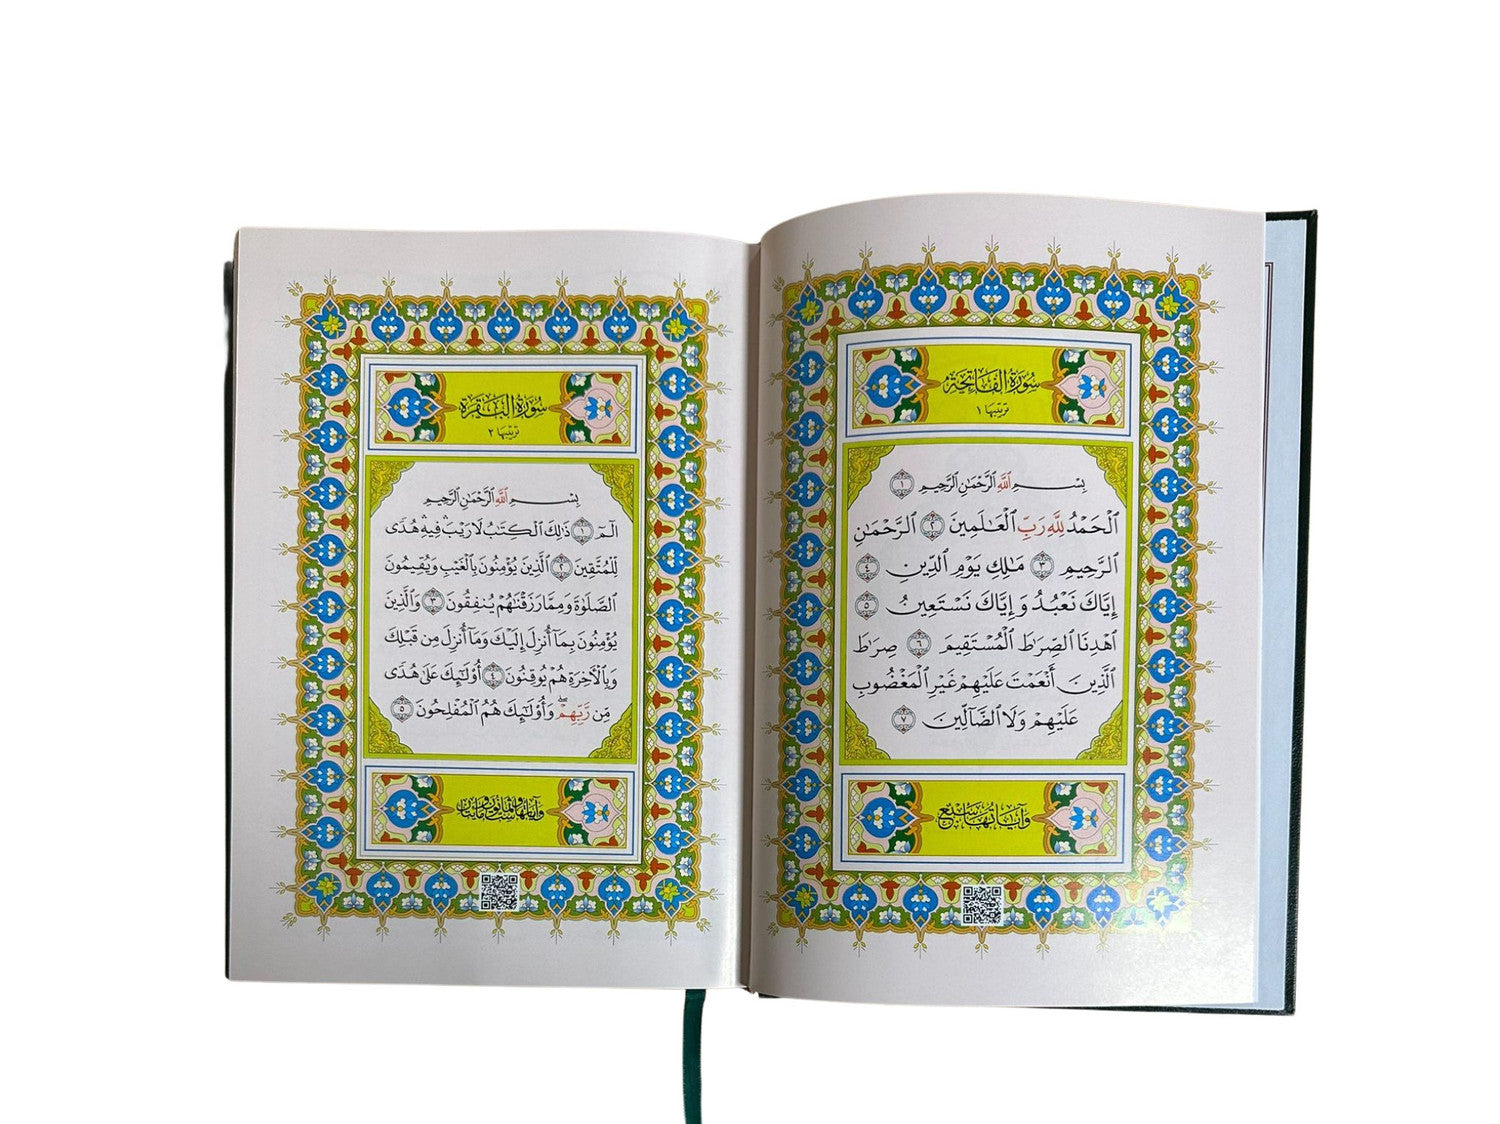 سُورَةُ الفَاتِحَةِ
ترتيبها ١
بِسۡمِ ٱللَّهِ ٱلرَّحۡمَٰنِ ٱلرَّحِيمِ ١
ٱلۡحَمۡدُ لِلَّهِ رَبِّ ٱلۡعَٰلَمِينَ ٢ ٱلرَّحۡمَٰنِ
ٱلرَّحِيمِ ٣ مَٰلِكِ يَوۡمِ ٱلدِّينِ ٤
إِيَّاكَ نَعۡبُدُ وَإِيَّاكَ نَسۡتَعِينُ ٥
ٱهۡدِنَا ٱلصِّرَٰطَ ٱلۡمُسۡتَقِيمَ ٦ صِرَٰطَ
ٱلَّذِينَ أَنۡعَمۡتَ عَلَيۡهِمۡ غَيۡرِ ٱلۡمَغۡضُوبِ
عَلَيۡهِمۡ وَلَا ٱلضَّآلِّينَ ٧
وَآيَاتُهَا سَبْعٌ
سُورَةُ البَقَرَةِ
ترتيبها ٢
بِسۡمِ ٱللَّهِ ٱلرَّحۡمَٰنِ ٱلرَّحِيمِ
الٓمٓ ١ ذَٰلِكَ ٱلۡكِتَٰبُ لَا رَيۡبَۛ فِيهِۛ هُدٗى
لِّلۡمُتَّقِينَ ٢ ٱلَّذِينَ يُؤۡمِنُونَ بِٱلۡغَيۡبِ وَيُقِيمُونَ
ٱلصَّلَوٰةَ وَمِمَّا رَزَقۡنَٰهُمۡ يُنفِقُونَ ٣ وَٱلَّذِينَ
يُؤۡمِنُونَ بِمَآ أُنزِلَ إِلَيۡكَ وَمَآ أُنزِلَ مِن قَبۡلِكَ
وَبِٱلۡأٓخِرَةِ هُمۡ يُوقِنُونَ ٤ أُوْلَٰٓئِكَ عَلَىٰ هُدٗى
مِّن رَّبِّهِمۡۖ وَأُوْلَٰٓئِكَ هُمُ ٱلۡمُفۡلِحُونَ ٥
وآياتها ست وثمانون ومايتان